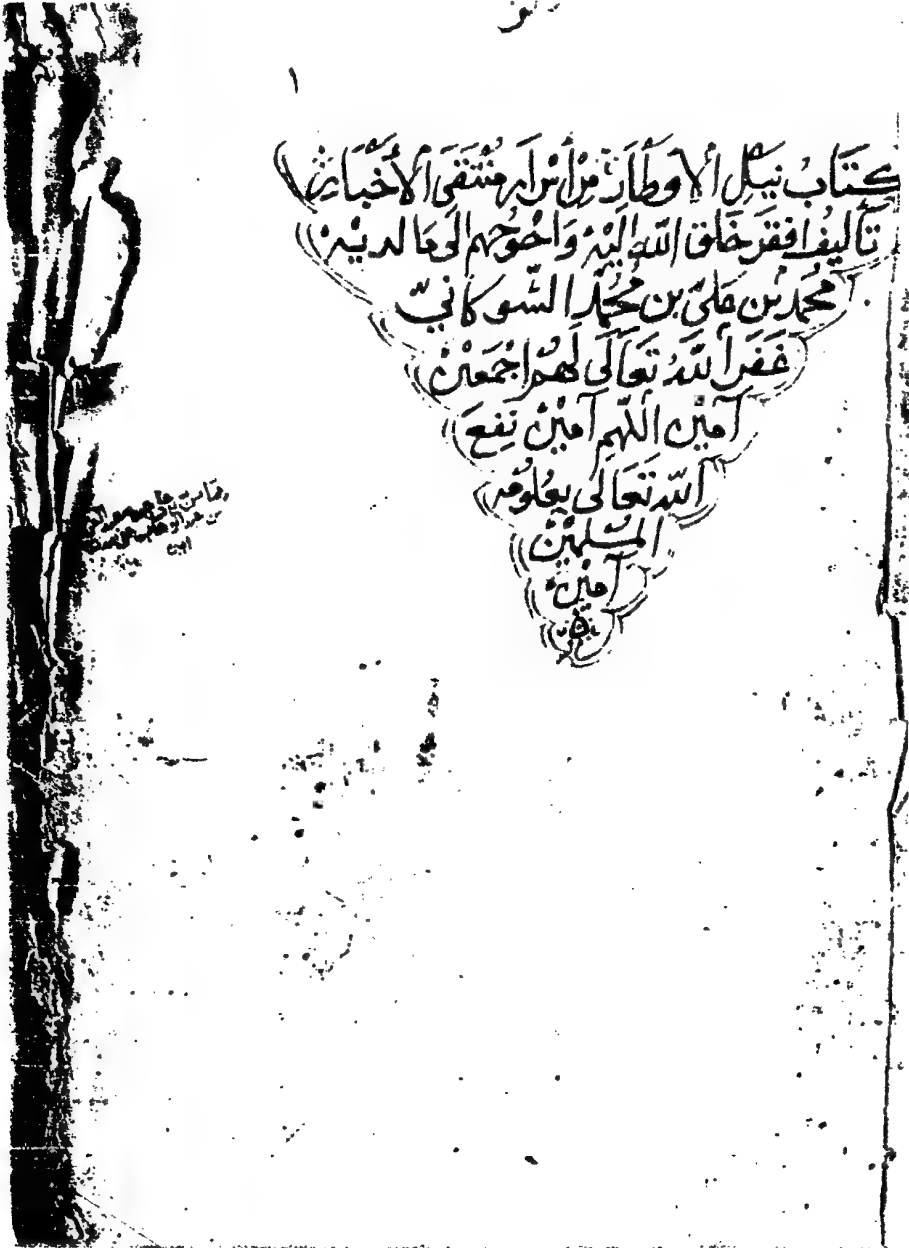 ١
كتاب نيل الأوطار من أسرار منتقى الأخبار
تأليف افقر خلق الله إليه واحوجهم الى ما لديه
محمد بن علي بن محمد الشوكاني
غفر الله تعالى لهم اجمعين
آمين اللهم آمين نفع
الله تعالى بعلومه
المسلمين
آمين